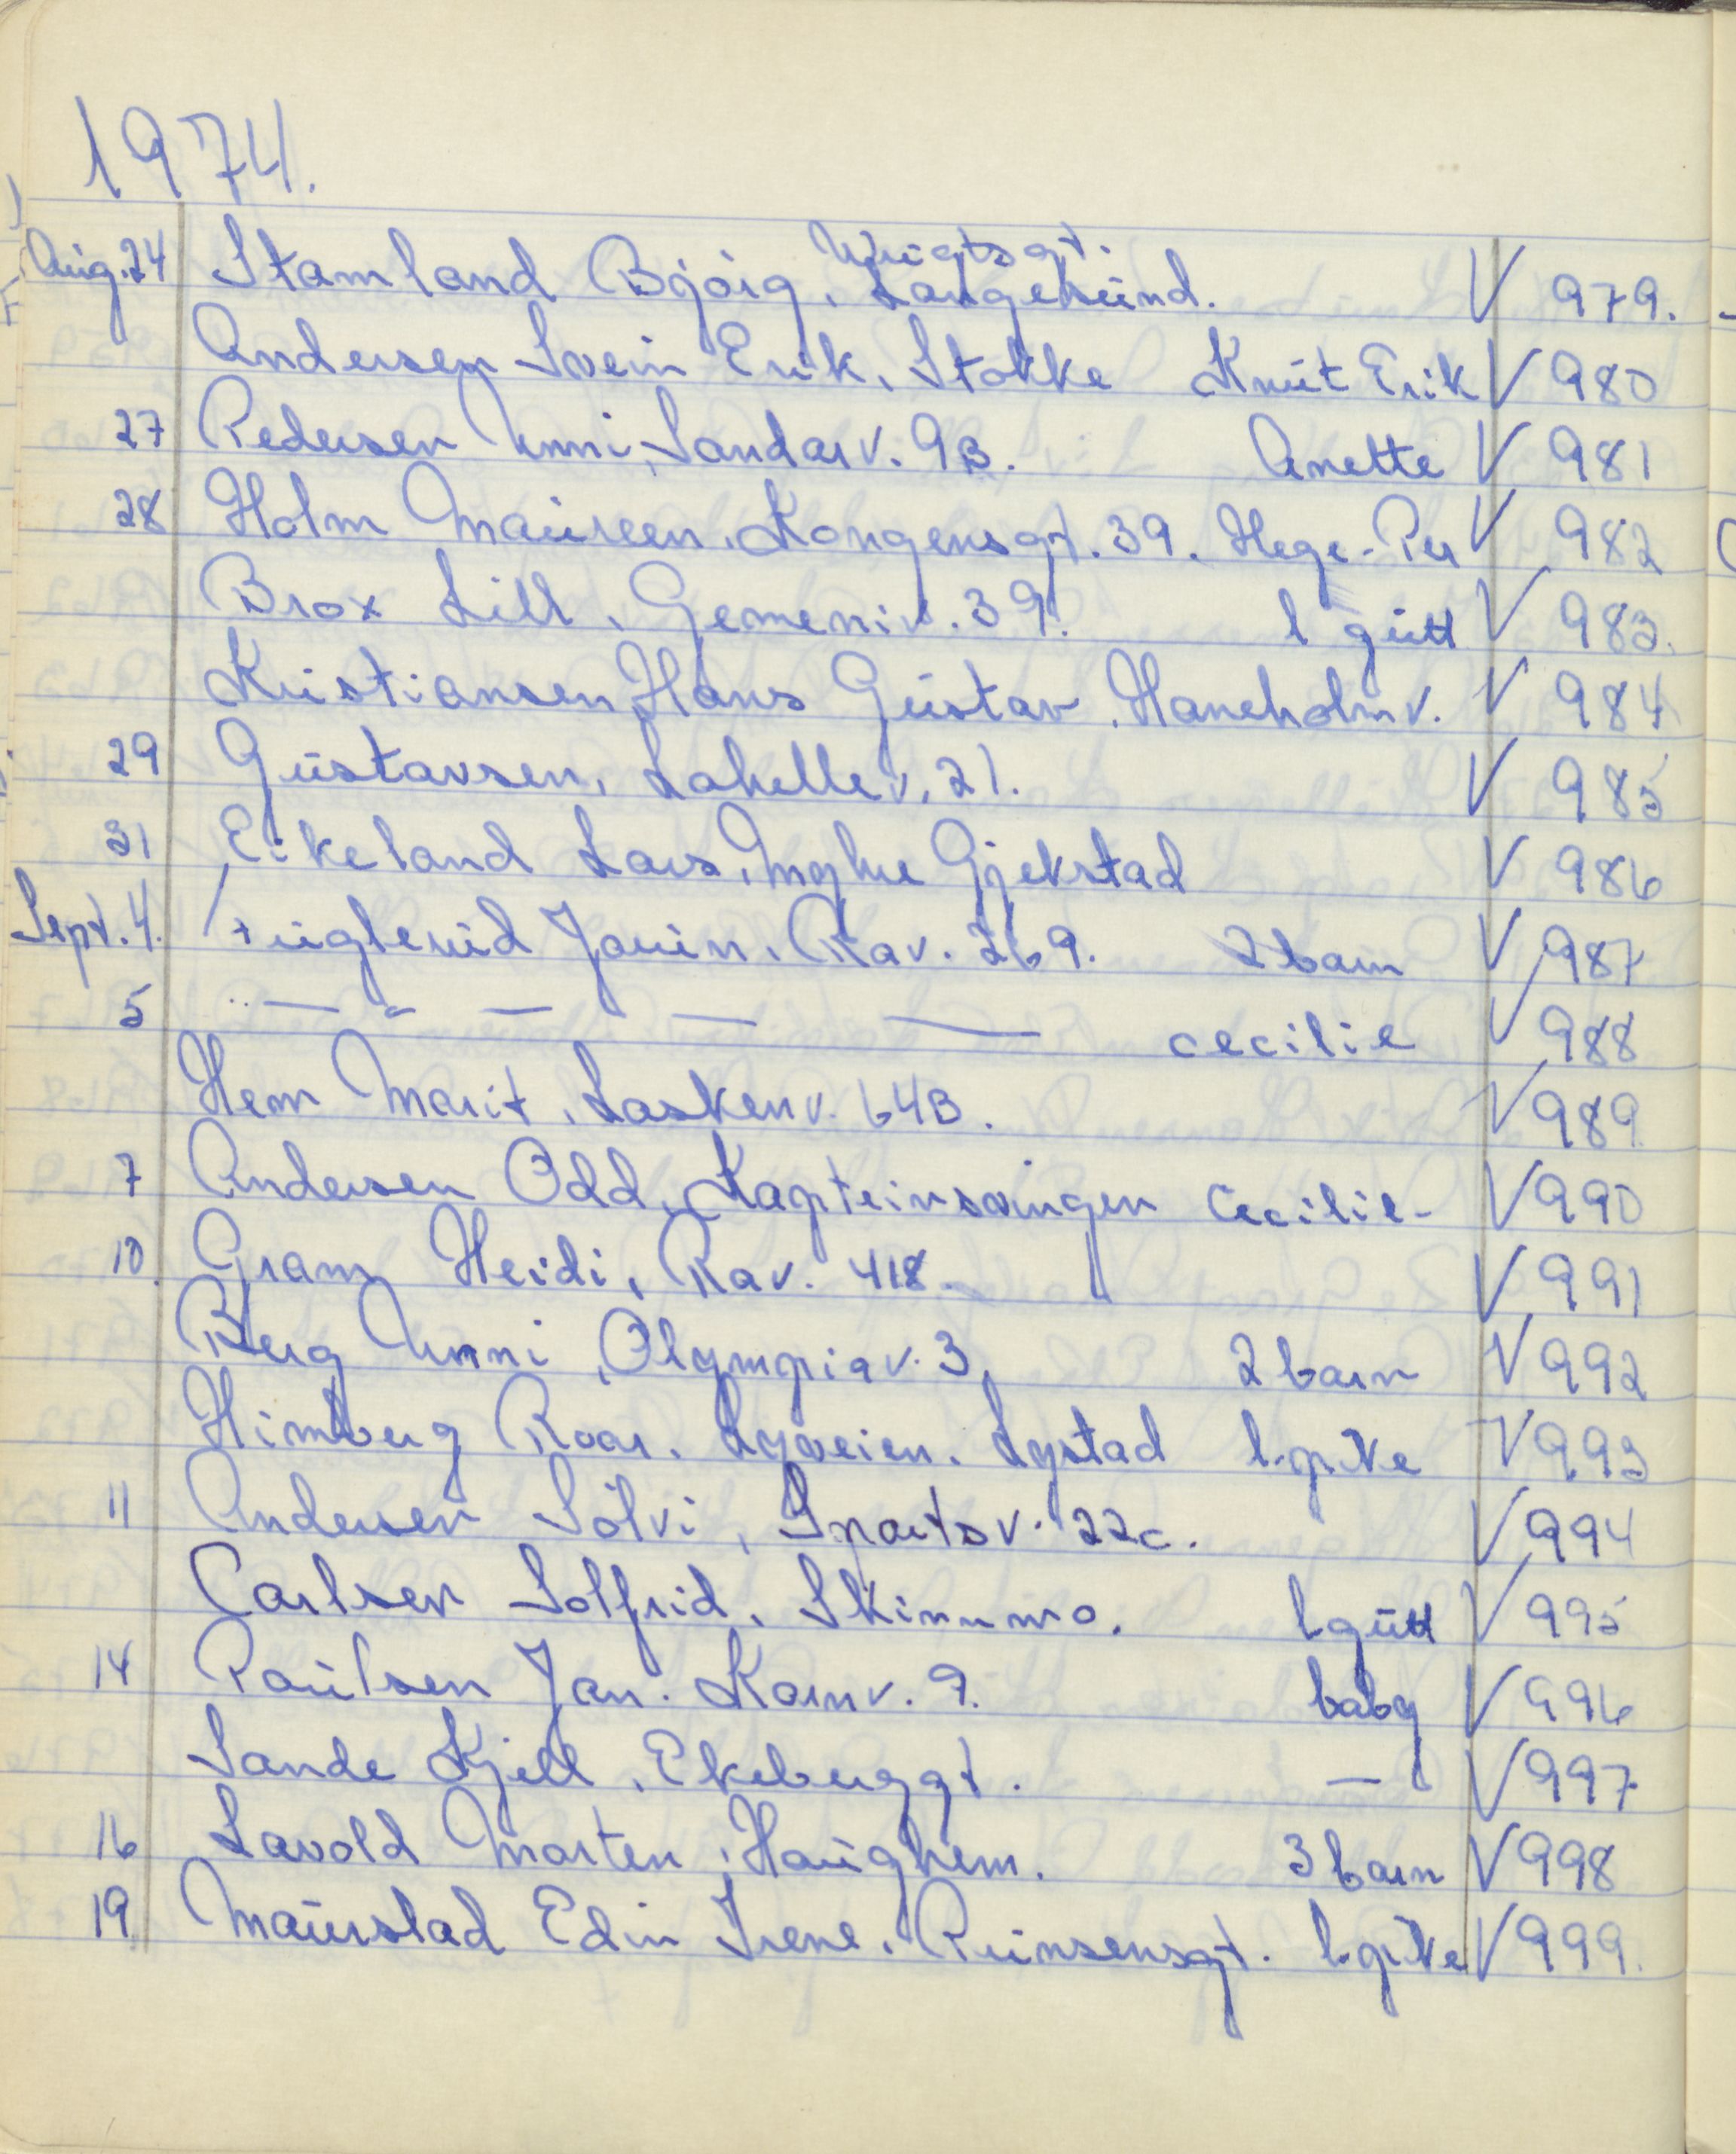 1974.
Wrigtsgt.
Aug. 24 Stamland Bjørg, Langesund. V 979.
Andersen Svein Erik, Stokke Knut Erik V 980
27 Pedersen Unni, Sandarv. 9B. Anette V 981
28 Holm Maureen, Kongensgt. 39. Hege-Per V 982
Brox Lill, Gemeniv. 39. 1 gutt V 983.
Kristiansen Hans Gustav, Haneholmv. V 984
29 Gustavsen, Lahellev. 21. V 985
31 Eikeland Lars, Gjekstad V 986
Sept. 4. Fuglevid Jouin, Rav. 269. 2 barn V 987
5 — " — — — cecilie V 988
Hem Marit, Laskenv. 64B. V 989
7 Andersen Odd, Kapteinsvingen Cecilie - V 990
10. Gram Heidi, Rav. 418. V 991
Berg Unni, Olympiav. 3. 2 barn V 992
Himberg Roar, Lyveien. Lystad 1 pike V 993
11 Andersen Sølvi, Snartsv. 22c. V 994
Carlsen Solfrid, Skinnmo. 1 gutt V 995
14 Paulsen Jan. Kornv. 9. baby V 996
Sande Kjell, Ekebergt. — V 997
16 Lavold Morten, Haughem. 3 barn V 998
19 Maurstad Edin Irene, Prinsensgt. 1 pike V 999.